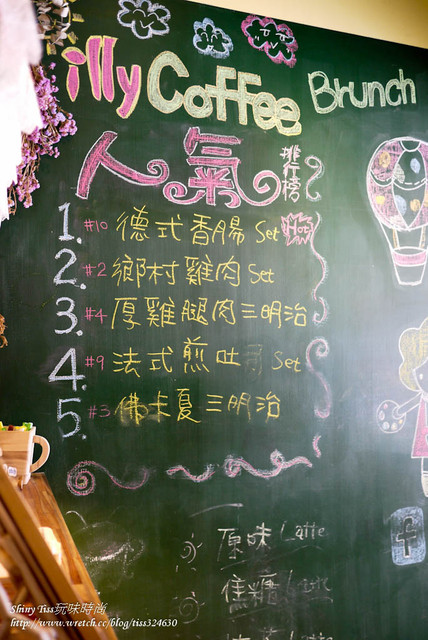 illy Coffee Brunch
人氣 排行榜
1. #10 德式香腸 Set Hot
2. #2 鄉村雞肉 Set
3. #4 厚雞腿肉三明治
4. #9 法式煎吐司 Set
5. #3 佛卡夏三明治
原味 Latte
焦糖
f
Shiny Tiss玩味時尚
http://www.wretch.cc/blog/tiss324630